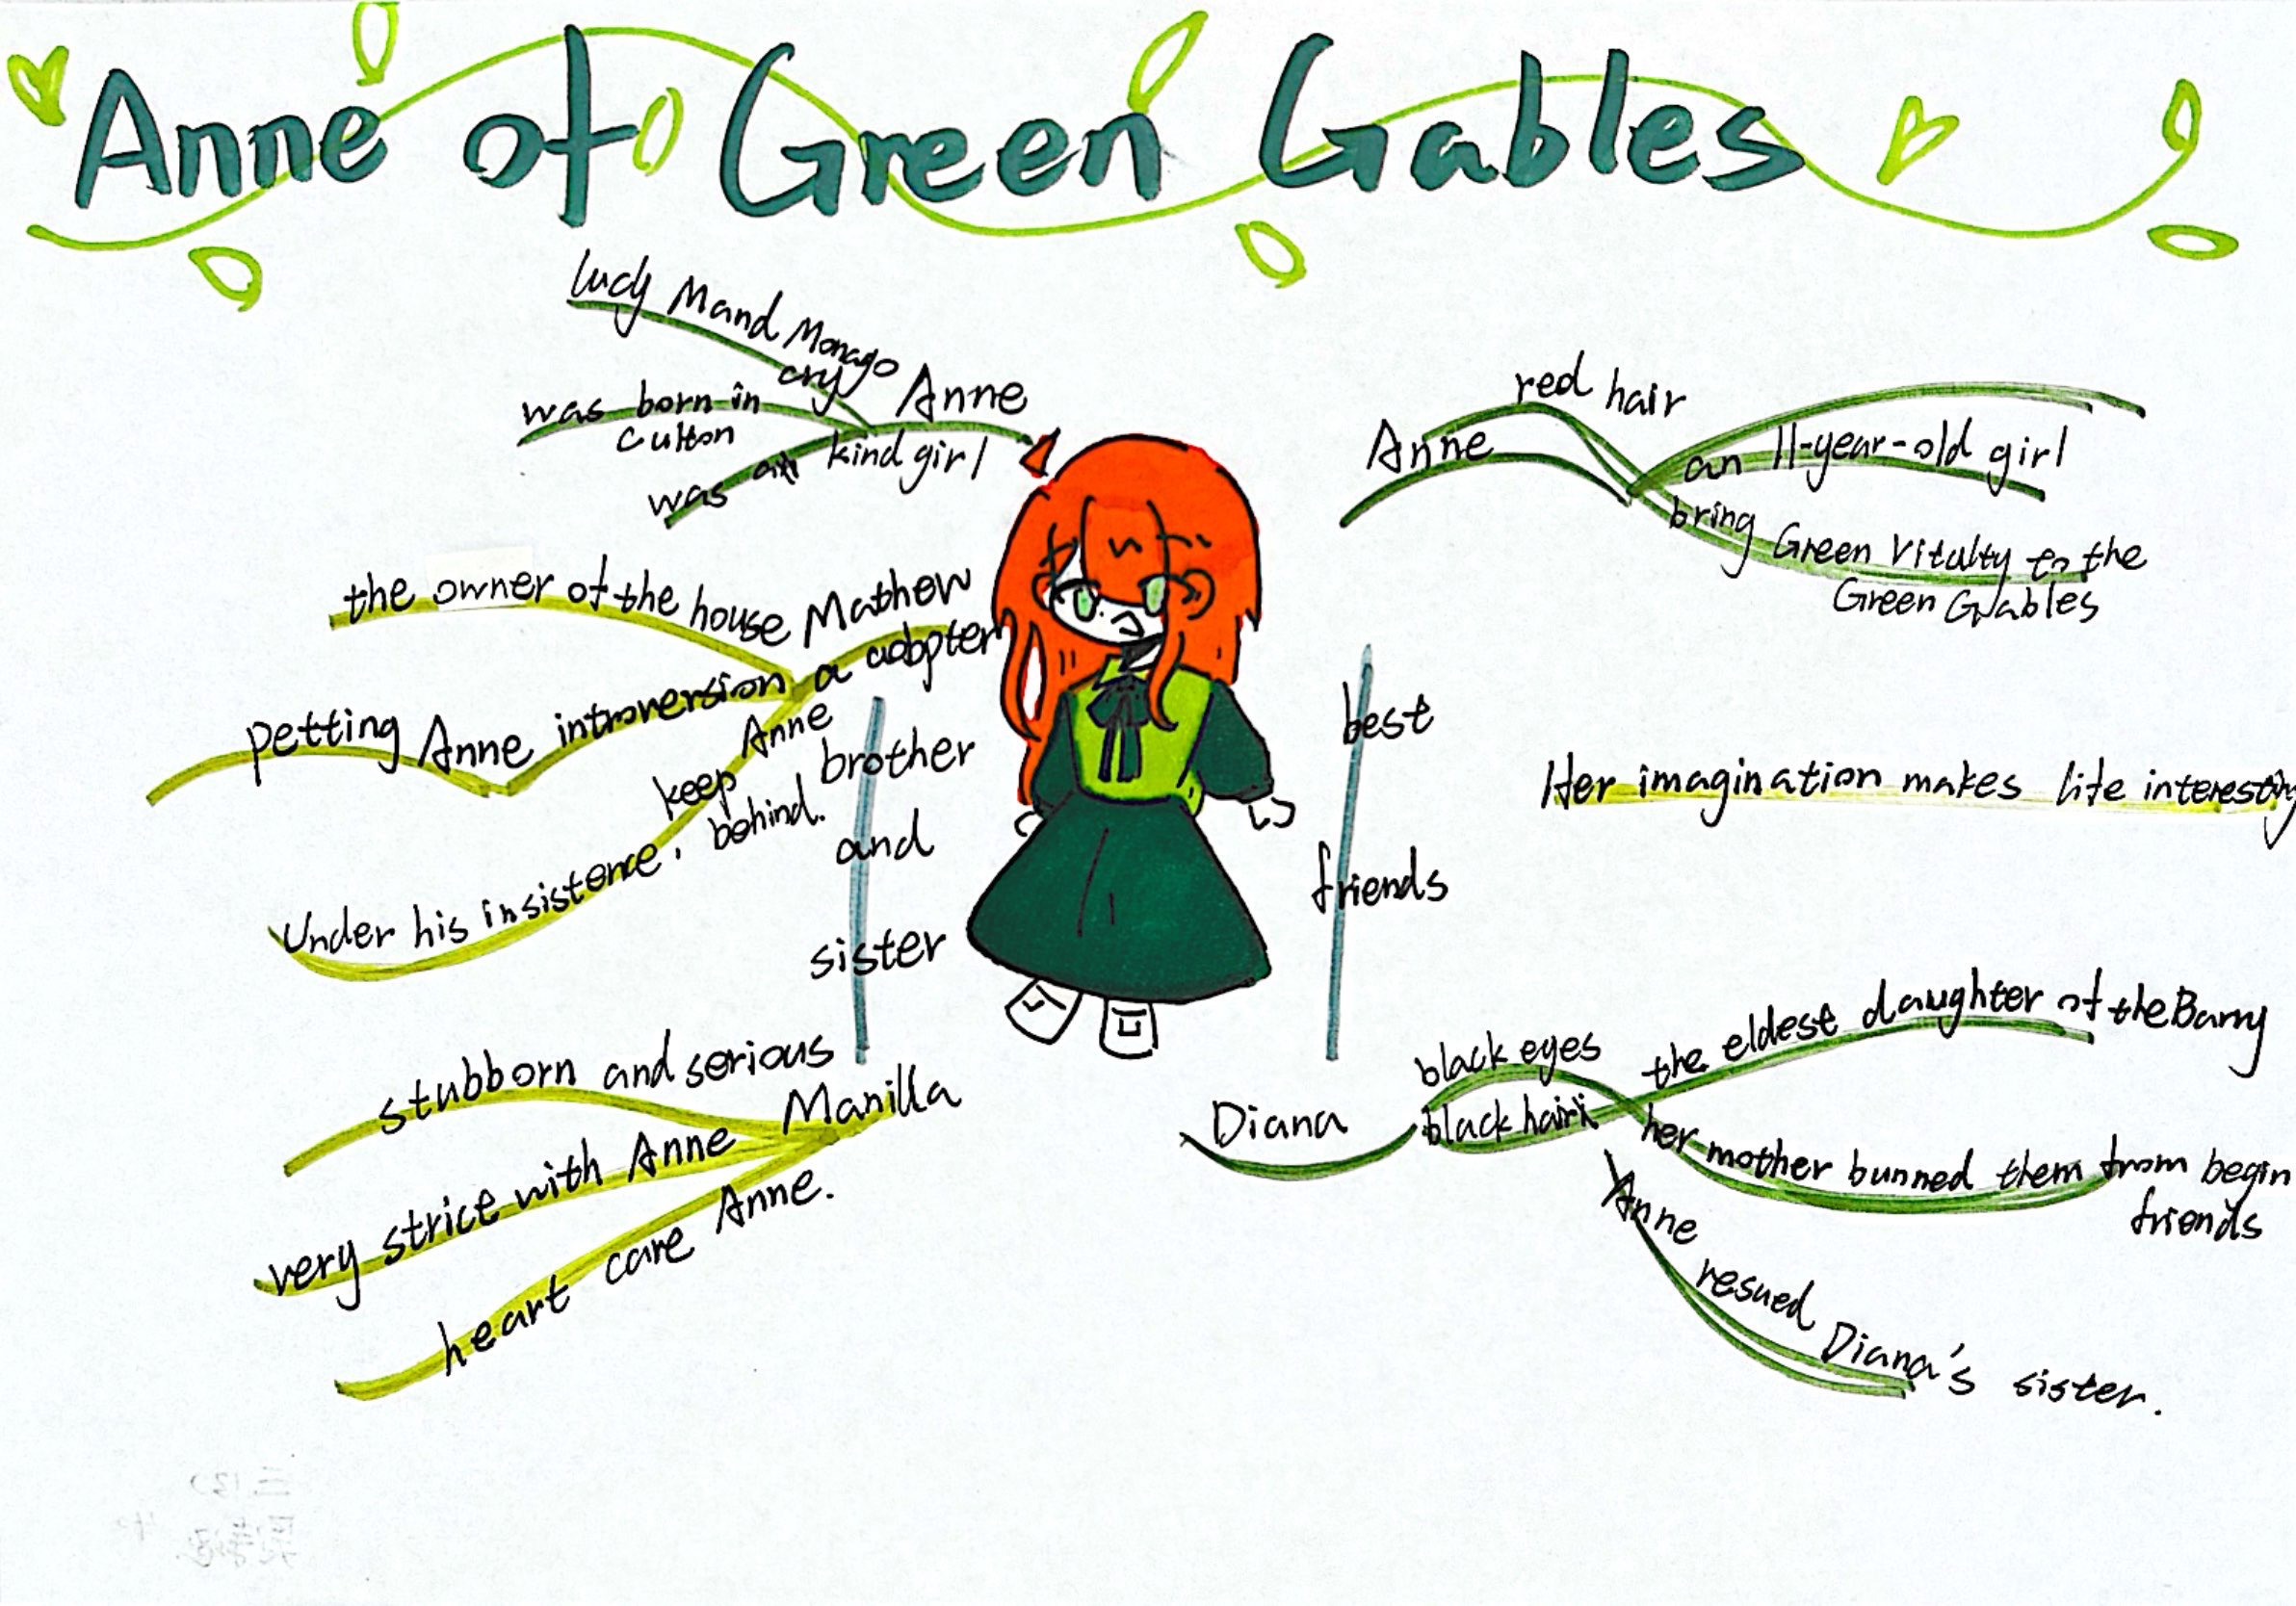 Anne of Green Gables
lucy Mand Monago
cry
Anne
was born in
Culton
was a kind girl
the owner of the house
Mathew
a adopter
petting Anne introversion
Under his insistence, keep Anne
behind.
brother
and
sister
stubborn and serious
Manilla
very strict with Anne
heart care Anne.
Anne
red hair
an 11-year-old girl
bring Green Vitalty to the
Green Gables
best
friends
Her imagination makes life interesting
Diana
black eyes
black hair
the eldest daughter of the Barry
her mother bunned them from begin
friends
Anne resued Diana's sister.